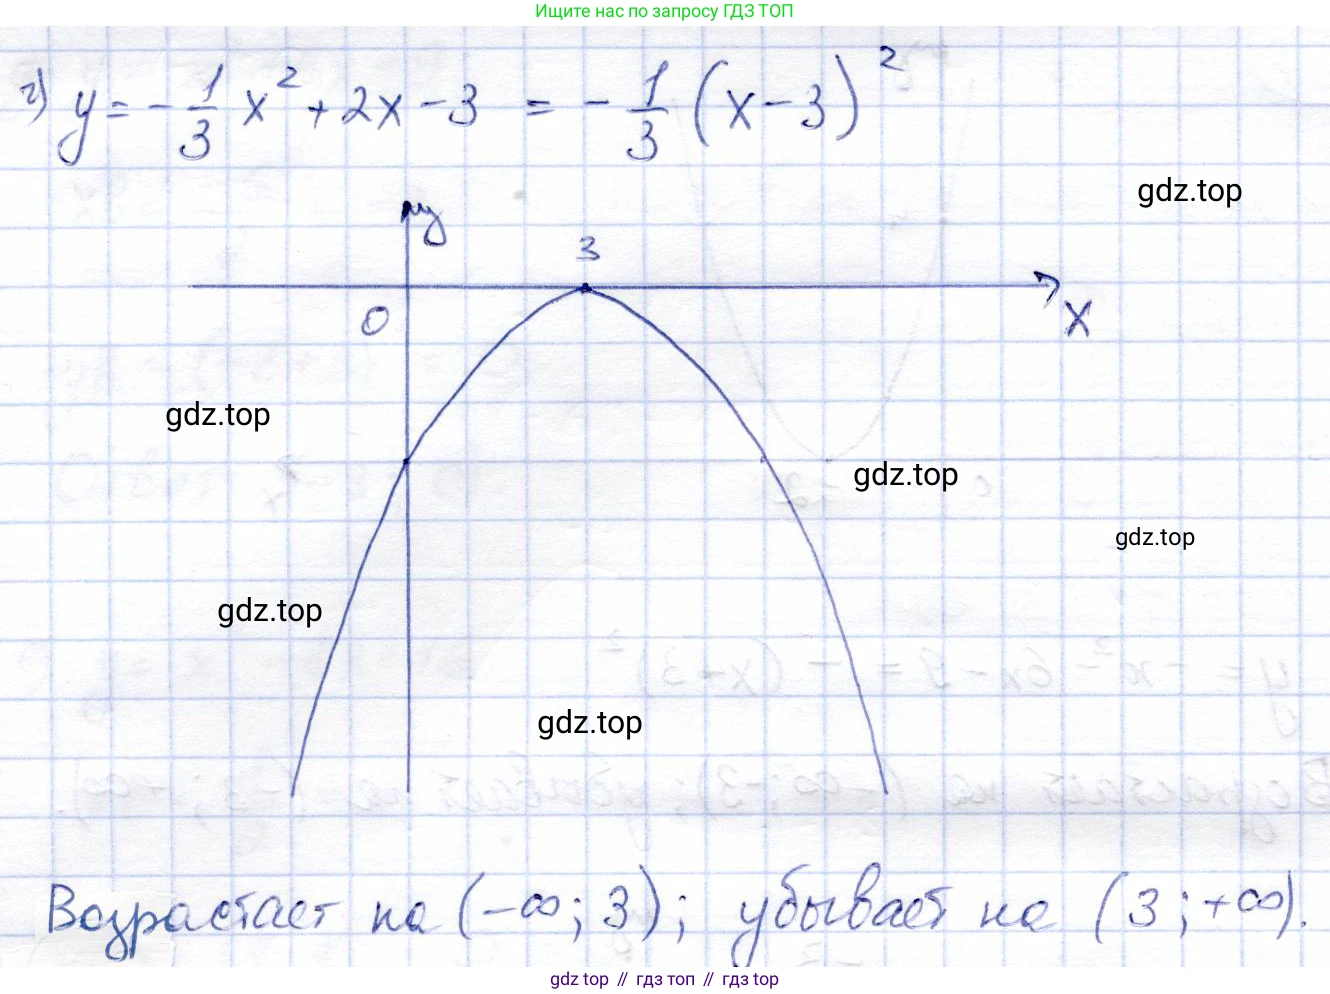 Ищите нас по запросу ГДЗ ТОП
г) y = -1/3 x² + 2x - 3 = -1/3 (x - 3)²
gdz.top
y
3
0
x
gdz.top
gdz.top
gdz.top
gdz.top
gdz.top
Возрастает на (-∞; 3); убывает на (3; +∞).
gdz.top // гдз топ // gdz.top